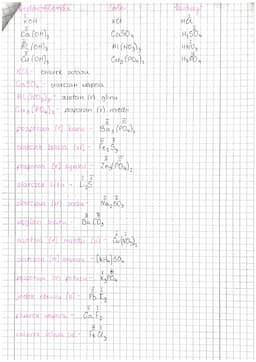 KOH KCl HCl
Ca(OH)₂ CaSO₄ H₂SO₄
Al(OH)₃ Al(NO₃)₃ HNO₃
Cu(OH)₂ Cu₃(PO₄)₂ H₃PO₄
KCl - chlorek potasu
CaSO₄ - siarczan wapnia
Al(NO₃)₃ - azotan (V) glinu
Cu₃(PO₄)₂ - fosforan (V) miedzi
fosforan (V) baru - Ba₃(PO₄)₂
siarczek żelaza (III) - Fe₂S₃
fosforan (V) cynku - Zn₃(PO₄)₂
siarczek litu - Li₂S
siarczan (IV) sodu - Na₂SO₃
węglan baru - BaCO₃
azotan (V) miedzi (II) - Cu(NO₃)₂
siarczan (VI) amonu - (NH₄)₂SO₄
fosforan (V) potasu - K₃PO₄
jodek ołowiu (II) - PbI₂
fluorek wapnia - CaF₂
chlorek żelaza